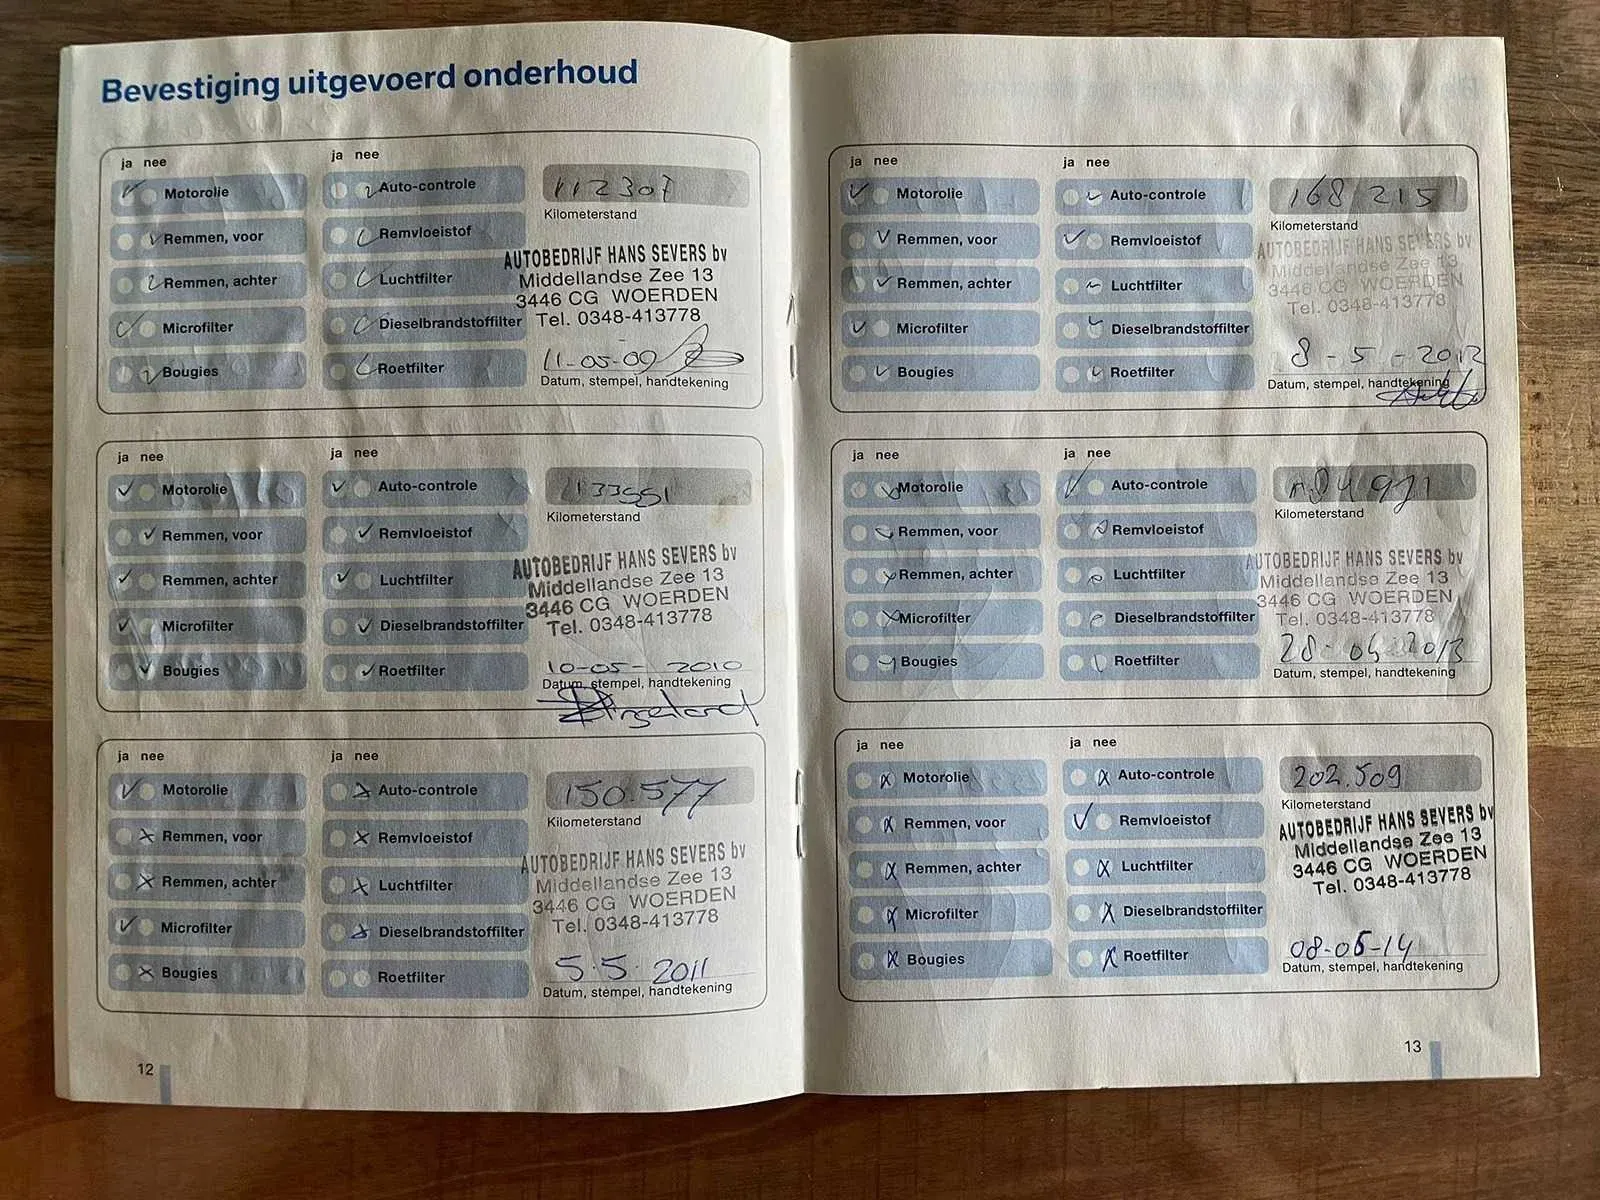 Bevestiging uitgevoerd onderhoud
ja nee
ja nee
Motorolie
Remmen, voor
Remmen, achter
Microfilter
Bougies
Auto-controle
Remvloeistof
Luchtfilter
Dieselbrandstoffilter
Roetfilter
112307
Kilometerstand
AUTOBEDRIJF HANS SEVERS bv
Middellandse Zee 13
3446 CG WOERDEN
Tel. 0348-413778
11-05-09
Datum, stempel, handtekening
ja nee
ja nee
Motorolie
Remmen, voor
Remmen, achter
Microfilter
Bougies
Auto-controle
Remvloeistof
Luchtfilter
Dieselbrandstoffilter
Roetfilter
133551
Kilometerstand
AUTOBEDRIJF HANS SEVERS bv
Middellandse Zee 13
3446 CG WOERDEN
Tel. 0348-413778
10-05-2010
Datum, stempel, handtekening
ja nee
ja nee
Motorolie
Remmen, voor
Remmen, achter
Microfilter
Bougies
Auto-controle
Remvloeistof
Luchtfilter
Dieselbrandstoffilter
Roetfilter
150.577
Kilometerstand
AUTOBEDRIJF HANS SEVERS bv
Middellandse Zee 13
3446 CG WOERDEN
Tel. 0348-413778
5.5.2011
Datum, stempel, handtekening
12
ja nee
ja nee
Motorolie
Remmen, voor
Remmen, achter
Microfilter
Bougies
Auto-controle
Remvloeistof
Luchtfilter
Dieselbrandstoffilter
Roetfilter
168215
Kilometerstand
AUTOBEDRIJF HANS SEVERS bv
Middellandse Zee 13
3446 CG WOERDEN
Tel. 0348-413778
8-5-2012
Datum, stempel, handtekening
ja nee
ja nee
Motorolie
Remmen, voor
Remmen, achter
Microfilter
Bougies
Auto-controle
Remvloeistof
Luchtfilter
Dieselbrandstoffilter
Roetfilter
Kilometerstand
AUTOBEDRIJF HANS SEVERS bv
Middellandse Zee 13
3446 CG WOERDEN
Tel. 0348-413778
Datum, stempel, handtekening
ja nee
ja nee
Motorolie
Remmen, voor
Remmen, achter
Microfilter
Bougies
Auto-controle
Remvloeistof
Luchtfilter
Dieselbrandstoffilter
Roetfilter
202.509
Kilometerstand
AUTOBEDRIJF HANS SEVERS bv
Middellandse Zee 13
3446 CG WOERDEN
Tel. 0348-413778
Datum, stempel, handtekening
13